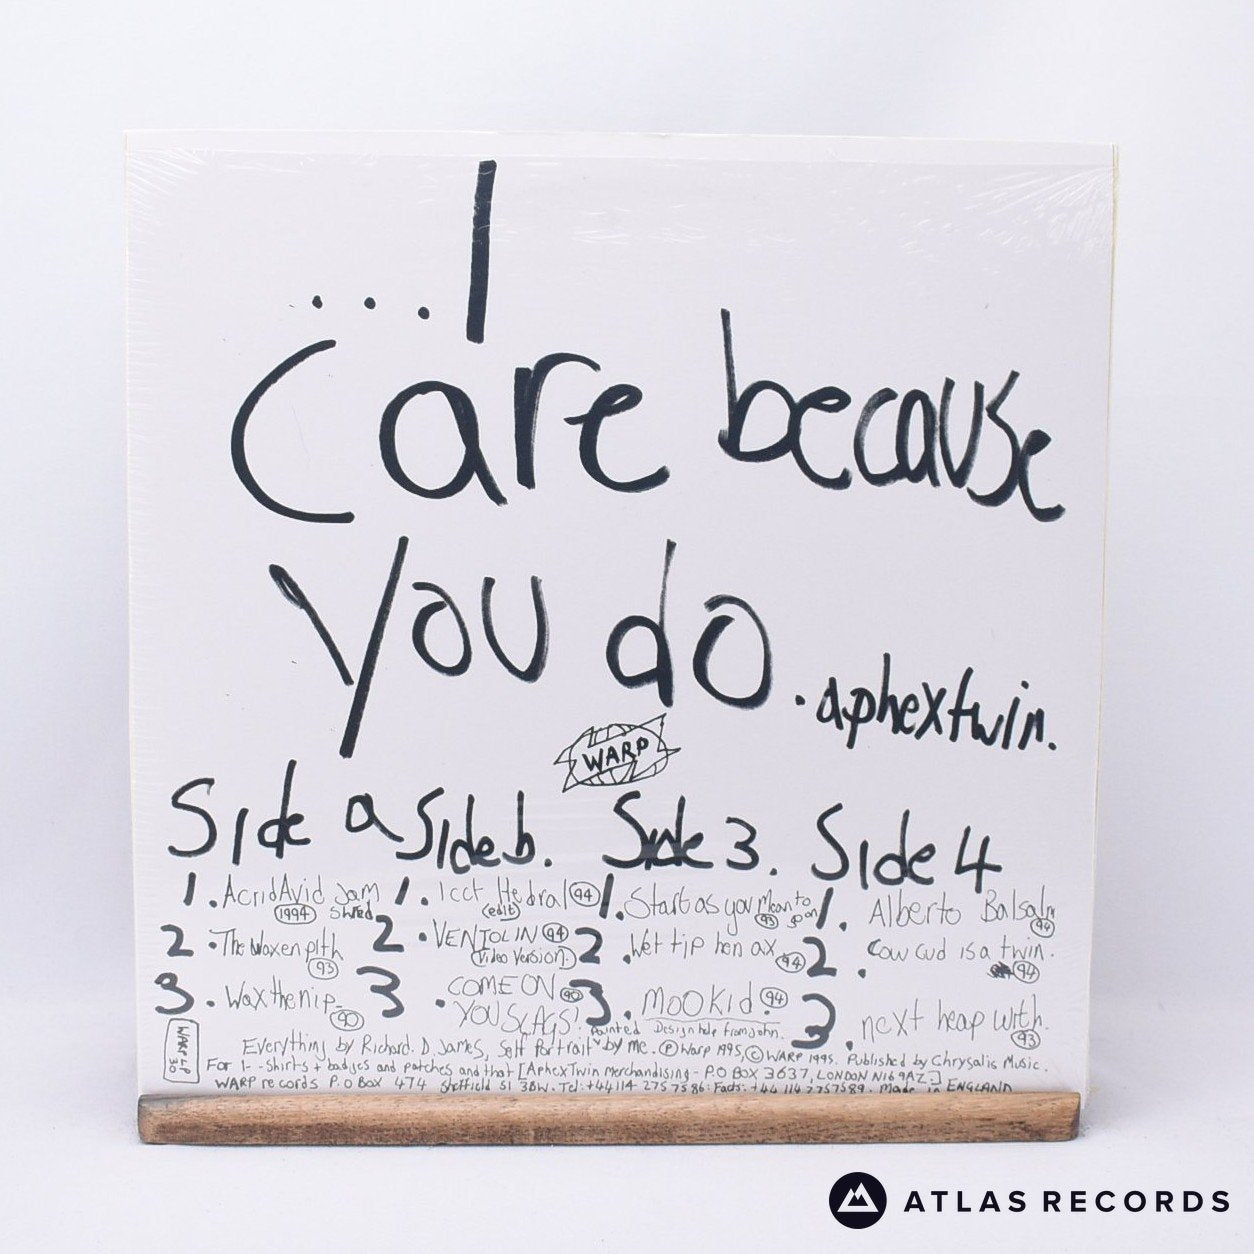 ...I
Care because
You do.
aphextwin.
WARP
Side a
1. AcridAvid Jam
1994 Shred
2. The Waxen pith
93
3. Wax the nip
90
Side b.
1. Icct Hedral 94
(edit)
2. VENTOLIN 94
(Video Version.)
3. COME ON 90
YOU SLAGS!
Side 3.
1. Start as you Mean to
93 go on
2. Wet tip hen ax 94
3. MOOKid. 94
Side 4
1. Alberto Balsalm
94
2. Cow Cud is a twin.
94
3. next heap with.
93
WARP LP
30
Everything by Richard. D. James, Self Portrait painted by me. Design help from John. ℗ Warp 1995, © WARP 1995. Published by Chrysalis Music.
For T-Shirts + badges and patches and that [AphexTwin Merchandising - P.O BOX 3637, LONDON N16 9AZ]
WARP records P.O Box 474 Sheffield S1 3BW. Tel: +44 114 275 7586: Facts: +44 114 2757589. Made in ENGLAND
ATLAS RECORDS